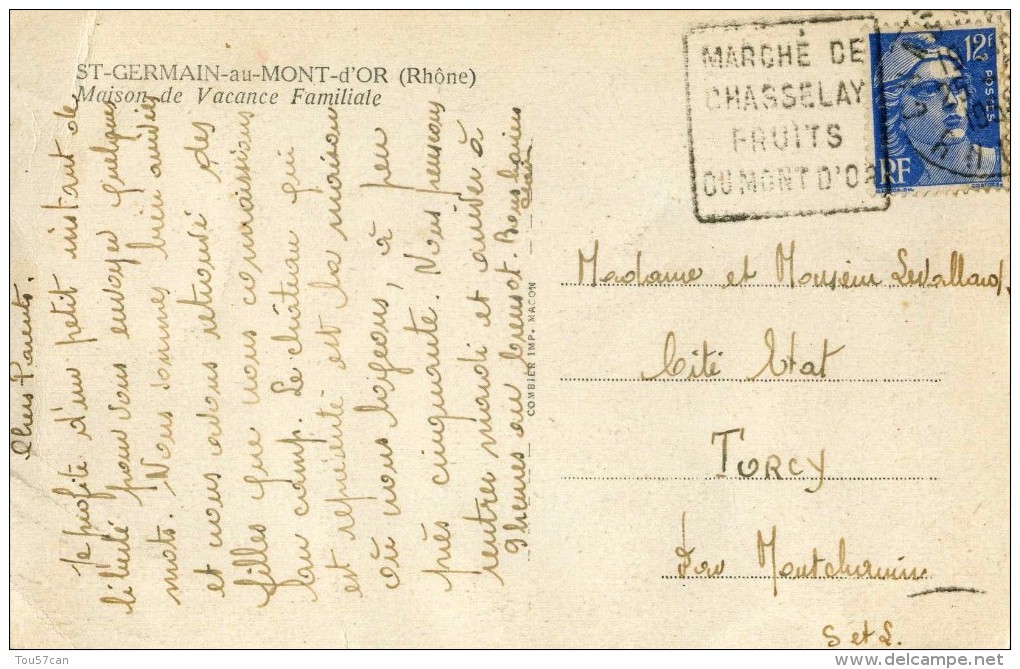 ST-GERMAIN-au-MONT-d'OR (Rhône)
Maison de Vacance Familiale
Chers Parents.
Je profite d'un petit instant de
liberté pour vous envoyer quelques
mots. Nous sommes bien arrivées
et nous avons retrouvé des
filles que nous connaissions
au camp. Le château qui
est représenté est la maison
où nous logeons, à peu
près cinquante. Nous pensons
rentrer mardi et arriver à
9 heures au Creusot. Bons baisers
COMBIER IMP. MACON
MARCHÉ DE
CHASSELAY
FRUITS
DU MONT D'OR
12f
POSTES
RF
Madame et Monsieur Levallard
Cité Etat
TORCY
Par Montchanin
S et L.
Tou57can
www.delcampe.net